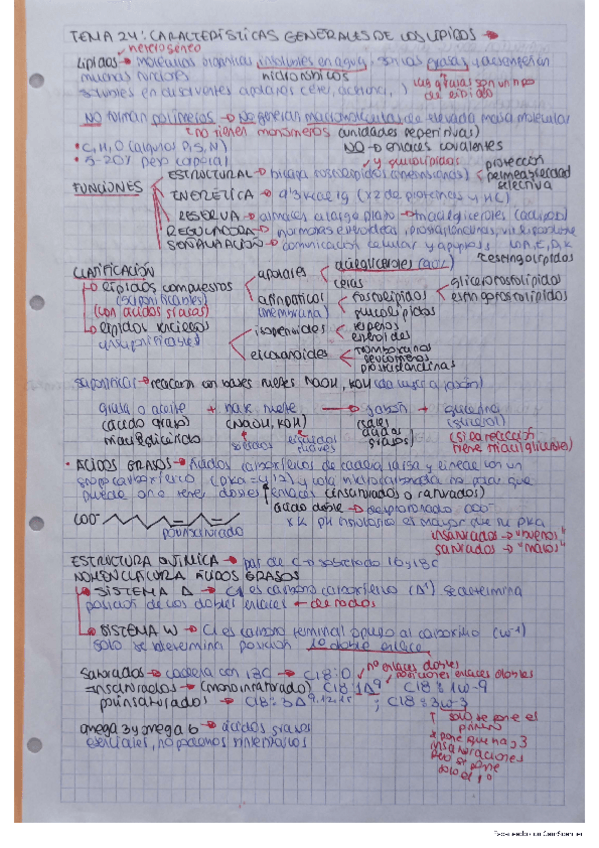 TEMA 24: CARACTERÍSTICAS GENERALES DE LOS LÍPIDOS
heterogéneo
Lípidos → moléculas orgánicas insolubles en agua, son las grasas y
muchas funciones hidrofóbicos las grasas son un tipo
solubles en disolventes apolares (éter, acetona, ) de lípido
NO forman polímeros → No generan macromoléculas de elevada masa molecular
no tienen monómeros (unidades repetitivas)
• C, H, O (algunos P, S, N) NO → enlaces covalentes
• 5-20% peso corporal
y glucolípidos
FUNCIONES
ESTRUCTURAL → fosfolípidos protección
permeabilidad
selectiva
ENERGÉTICA → 9'3 kcal/g (x2 de proteínas y HC)
RESERVA → a largo plazo → triacilgliceroles
REGULADORA → hormonas esteroideas
SEÑALIZACIÓN → comunicación celular y apoptosis
esfingolípidos
CLASIFICACIÓN
lípidos compuestos
(saponificables)
(con ácidos grasos)
apolares
acilgliceroles
ceras
anfipáticos
(membrana)
fosfolípidos
glicerofosfolípidos
esfingofosfolípidos
glucolípidos
lípidos sencillos
insaponificables
isoprenoides
terpenos
esteroides
eicosanoides
tromboxanos
leucotrienos
prostaglandinas
saponificar → reaccionar con bases fuertes NaOH, KOH
grasa o aceite + base fuerte → jabón + glicerina
(ácido graso) (NaOH, KOH) (sales (glicerol)
ácidos
grasos)
(si la reacción
tiene triacilglicéridos)
• ÁCIDOS GRASOS → Ácidos carboxílicos de cadena larga y lineal con un
grupo carboxílico y cola hidrocarbonada no polar que
puede o no tener dobles enlaces (insaturados o saturados)
ácido doble → desprotonado COO⁻
xk pH fisiológico es mayor que su pka
COO⁻
poliinsaturado
insaturados → "buenos"
saturados → "malos"
ESTRUCTURA QUÍMICA → par de C → sobretodo 16 y 18C
NOMENCLATURA ÁCIDOS GRASOS
SISTEMA Δ → C1 es carbono carboxílico (Δ¹) se determina
posición de los dobles enlaces ← de todos
SISTEMA W → C1 es carbono terminal opuesto al carboxilo (w-1)
solo se determina posición 1º doble enlace
saturados → cadena con 18C → C18:0 no enlaces dobles
posiciones enlaces dobles
insaturados → (monoinsaturado) C18:1Δ⁹ C18:1w-9
poliinsaturados → C18:3Δ⁹·¹²·¹⁵ ; C18:3w-3
solo se pone el
primero
* pone que hay 3
insaturaciones
pero se pone
solo el 1º
omega 3 y omega 6 → ácidos grasos
esenciales, no podemos sintetizarlos
Escaneado con CamScanner